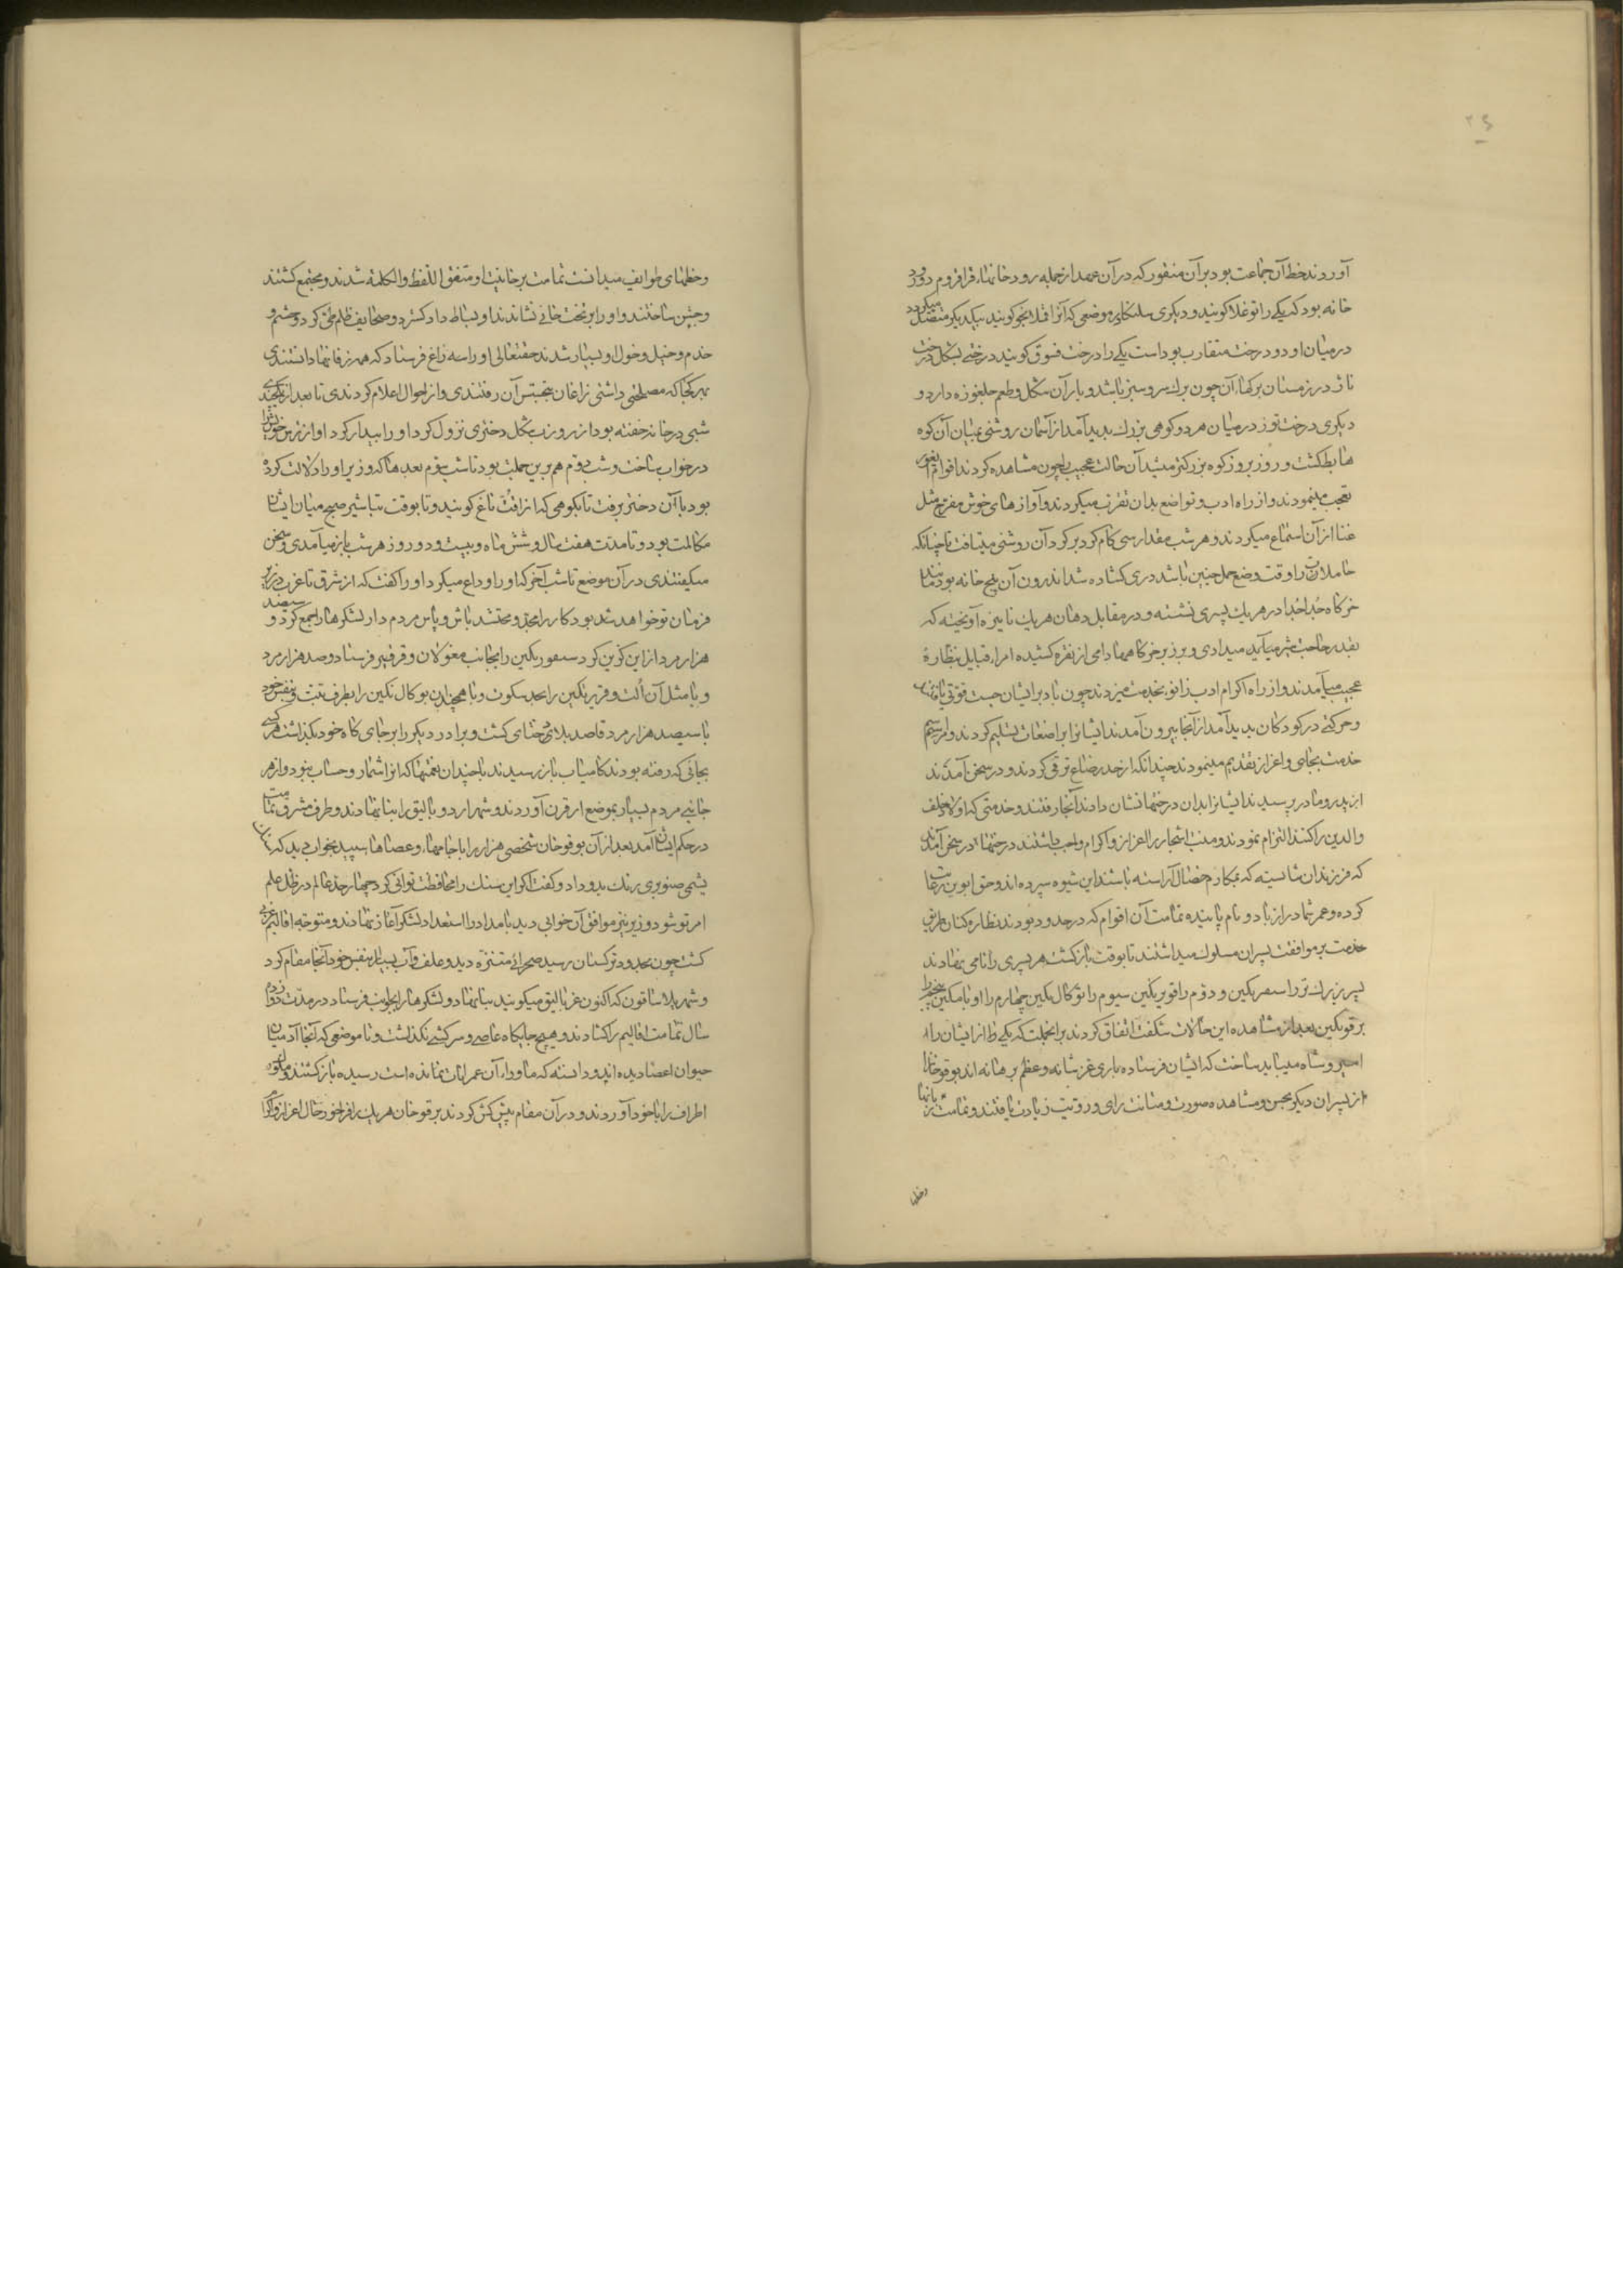 ۲۶
آوردند خط آن جماعت بود بر آن منقور که در آن عهد از جمله رودخانهاء قراقروم دو رود
خانه بود که یکی را توغلا کویند و دیکری سلنکای بموضعی که آنرا قملانجو کویند بیکدیکر متصل میکردد
در میان او دو درخت متقارب بوداست یکی را درخت قسوق کویند درختی بشکل درخت
ناژ در زمستان برکهاء آن چون برک سرو سبز باشد و بار آن شکل و طعم چلغوزه دارد و
دیکری درخت توز در میان هر دو کوهی بزرک پدید آمد از آسمان روشنی بمیان آن کوه
هابط کشت و روز بروز کوه بزرکتر میشد آن حالت عجیب را چون مشاهده کردند اقوام ایغور
تعجب مینمودند و از راه ادب و تواضع بدان تقرب میکردند و آوازهای خوش مفرح مثل
غنا از آن استماع میکردند و هر شب مقدار سی کام کرد بر کرد آن روشنی میتافت تا چنانکه
حاملان را وقت وضع حمل چنین باشد دری کشاده شد اندرون آن پنج خانه بود مانند
خرکاه جدا جدا در هر یک پسری نشسته و در مقابل دهان هر یک نایزه آویخته که
بقدر حاجت شیر میآید میدادی و بر زبر خرکاهها دامی از نقره کشیده امراء قبایل نظارۀ
عجیب میآمدند و از راه اکرام ادب زانو بخدمت میزدند چون باد بر ایشان جست قوتی یافتند
و حرکتی در کودکان پدید آمد از آنجا بیرون آمدند ایشانرا براضعات تسلیم کردند و مراسم
خدمت بجای و اعزاز تقدیم مینمودند چندانکه از حد رضاع ترقی کردند و در سخن آمدند
از پدر و مادر پرسیدند ایشانرا بدان درختها نشان دادند آنجا رفتند و خدمتی که اولاد خلف
والدین را کنند التزام نمودند و منبت اشجار را اعزاز و اکرام واجب داشتند درختها در سخن آمدند
که فرزندان شایسته که بمکارم خصال آراسته باشند این شیوه سپرده اند و حق ابوین رعایت
کرده و عمر شما دراز باد و نام پاینده تمامت آن اقوام که در حدود بودند نظاره کنان بطریق
خدمت بر موافقت پسران مسلوک میداشتند تا بوقت بازکشت هر پسری را نامی نهادند
پسر بزرکتر را سنقر تکین و دوم را قوتر تکین سیوم را توکال تکین چهارم را اور تکین پنجم را
بوقو تکین بعد از مشاهده این حالات شکفت اتفاق کردند بر آنجملت که یکی را از ایشان
امیر و شاه میباید ساخت که ایشان فرستاده باری عز شانه و عظم برهانه اند بوقو خان را
از پسران دیکر بحسن و مشاهده صورت و متانت رای و رویت زیادت یافتند و تمامت زبانها
وخطها
وخطهای طوایف میدانست تمامت بر خانیت او متفق اللفظ والکلمة شدند و مجتمع کشتند
و جشن ساختند و او را بر تخت خانی نشاندند او بساط داد کسترد و صحایف ظلم طی کرد و حشم و
خدم و خیل و خول او بسیار شدند حقتعالی او را سه زاغ فرستاد که همه زفانها دانستندی
بهر کجا که مصلحتی داشتی زاغان بتجسس آن رفتندی و از احوال اعلام کردندی تا بعد از یکچندی
شبی در خانه خفته بود از روزن شکل دختری نزول کرد و او را بیدار کرد او از ترس خویش را
در خواب ساخت و شب دوم هم برین جملت بود تا شب سیوم بعد ها که وزیر او را دلالت کرده
بود با آن دختر برفت تا بکوهی که انرا اقت تاغ کویند و تا بوقت تباشیر صبح میان ایشان
مکالمت بود و تا مدت هفت سال و شش ماه و بیست و دو روز هر شب باز میآمدی و سخن
میکفتندی در آن موضع تا شب آخر که او را وداع میکرد او را کفت که از شرق تا غرب در زیر
فرمان تو خواهد شد بود کار را مجد و مجتهد باش و پاس مردم دار لشکرها را جمع کرد و سیصد
هزار مرد از این کزین کرد سنقور تکین را بجانب مغولان و قرقیز فرستاد و صد هزار مرد
و با مثل آن الت و قوتر تکین را بحد تنکوت و با همچندین توکال تکین را بطرف تبت و بنفس خود
با سیصد هزار مرد قاصد بلاد ختای کشت و برادر دیکر را بر جای کاه خود بکذاشت هر کسی
بجائی که رفته بودند کامیاب باز رسیدند با چندان نعمتها که انرا شمار و حساب نبود و از هر
جانبی مردم بسیار بموضع ارقون آوردند و شهر اردو بالیق را بنا نهادند و طرف مشرق تمامت
در حکم ایشان آمد بعد از آن بوقو خان شخصی هزار را با جامهاء و عصاها سپید بخواب دید که
یشمی صنوبری رنک بدو داد و کفت اکر این سنک را محافظت توانی کرد چهار حد عالم در ظل علم
امر تو شود وزیر نیز موافق آن خوابی دید بامداد را استعداد لشکر آغاز نهادند و متوجه اقالیم غربی
کشت چون بحدود ترکستان رسید صحرائی متنزه دید و علف و آب بسیار بنفس خود آنجا مقام کرد
و شهر بلاساقون که اکنون غز بالیق میکویند بنا نهاد و لشکرها را بجوانب فرستاد در مدت دوازده
سال تمامت اقالیم را کشادند و هیچ جایکاه عاصی و سرکشی نکذاشت و تا موضعی که آنجا آدمیان
حیوان اعضا دیده اند و دانسته که ماوراء آن عمرانات نمانده است رسیده باز کشتند و ملوک
اطراف را با خود آوردند و در آن مقام پیش کش کردند بوقو خان هر یک را فراخور حال اعزاز و اکرام